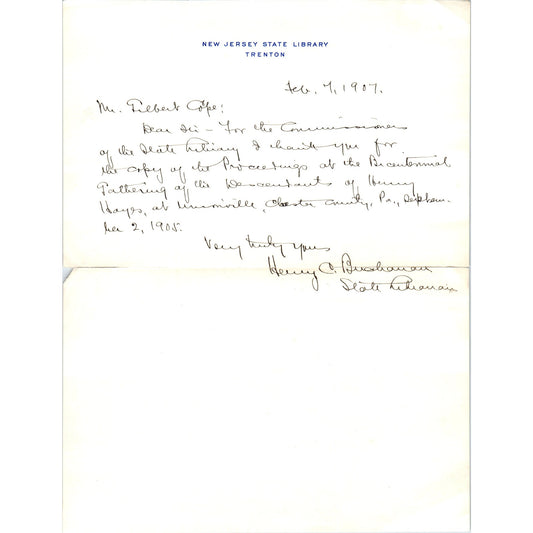 NEW JERSEY STATE LIBRARY
TRENTON
Feb. 7, 1907.
Mr. Gilbert Cope;
Dear Sir – For the Commissioners
of the State Library I thank you for
the copy of the Proceedings at the Bicentennial
Gathering of the Descendants of Henry
Hayes, at Unionville, Chester County, Pa., Septem-
ber 2, 1905.
Very truly yours
Henry C. Buchanan
State Librarian